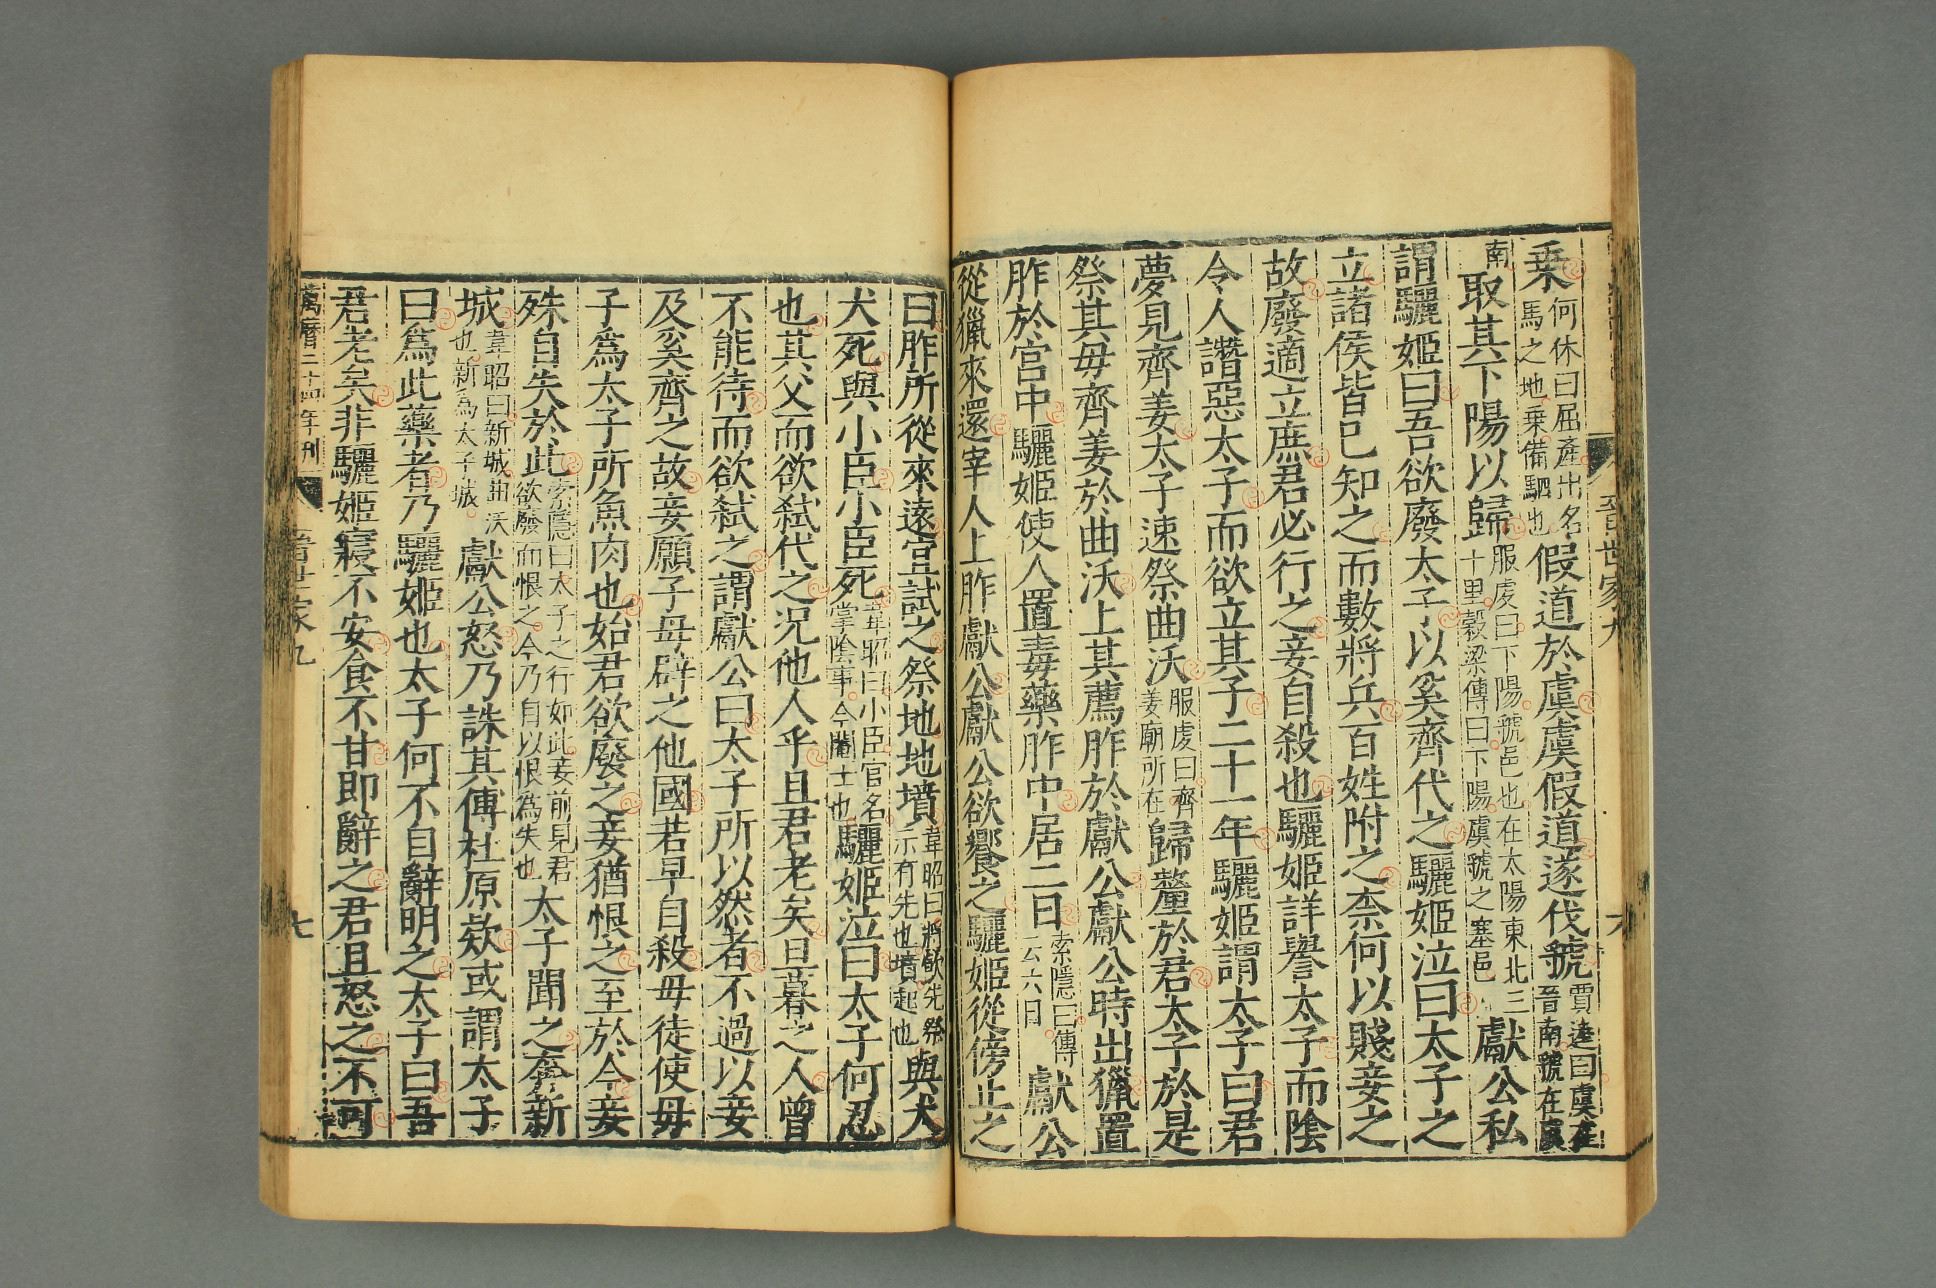 乗何休曰屈產出名馬之地乗備駟也假道於虞虞假道遂伐虢賈逵曰虞在晉南虢在虞
南取其下陽以歸服虔曰下陽虢邑也在太陽東北三十里榖梁傳曰下陽虞虢之塞邑獻公私
謂驪姬曰吾欲廢太子以奚齊代之驪姬泣曰太子之
立諸侯皆已知之而數將兵百姓附之柰何以賤妾之
故廢適立庶君必行之妾自殺也驪姬詳譽太子而陰
令人譖惡太子而欲立其子二十一年驪姬謂太子曰君
夢見齊姜太子速祭曲沃服虔曰齊姜廟所在歸釐於君太子於是
祭其母齊姜於曲沃上其薦胙於獻公獻公時出獵置
胙於宮中驪姬使人置毒藥胙中居二日索隱曰傳云六日獻公
從獵來還宰人上胙獻公獻公欲饗之驪姬從傍止之
曰胙所從來遠宜試之祭地地墳韋昭曰將飲先祭示有先也墳起也與犬
犬死與小臣小臣死韋昭曰小臣官名掌陰事今閹士也驪姬泣曰太子何忍
也其父而欲弑代之況他人乎且君老矣旦暮之人曾
不能待而欲弑之謂獻公曰太子所以然者不過以妾
及奚齊之故妾願子母辟之他國若早自殺毋徒使母
子為太子所魚肉也始君欲廢之妾猶恨之至於今妾
殊自失於此索隱曰太子之行如此妾前見君欲廢而恨之今乃自以恨為失也太子聞之奔新
城韋昭曰新城曲沃也新為太子城獻公怒乃誅其傅杜原款或謂太子
曰為此藥者乃驪姬也太子何不自辭明之太子曰吾
君老矣非驪姬寢不安食不甘即辭之君且怒之不可
萬曆二十四年刊 晉世家九 七